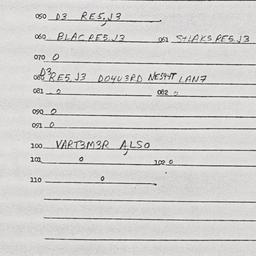 050 D3 RES,J3
060 BLAC RES.J3 061 SHAKS RES.J3
070 0
080 D3 RES, J3 DO4U3RD NESHT LAN7
081 0 082 0
090 0
091 0
100 VART3M3R ALSO
101 0 102 0
110 0